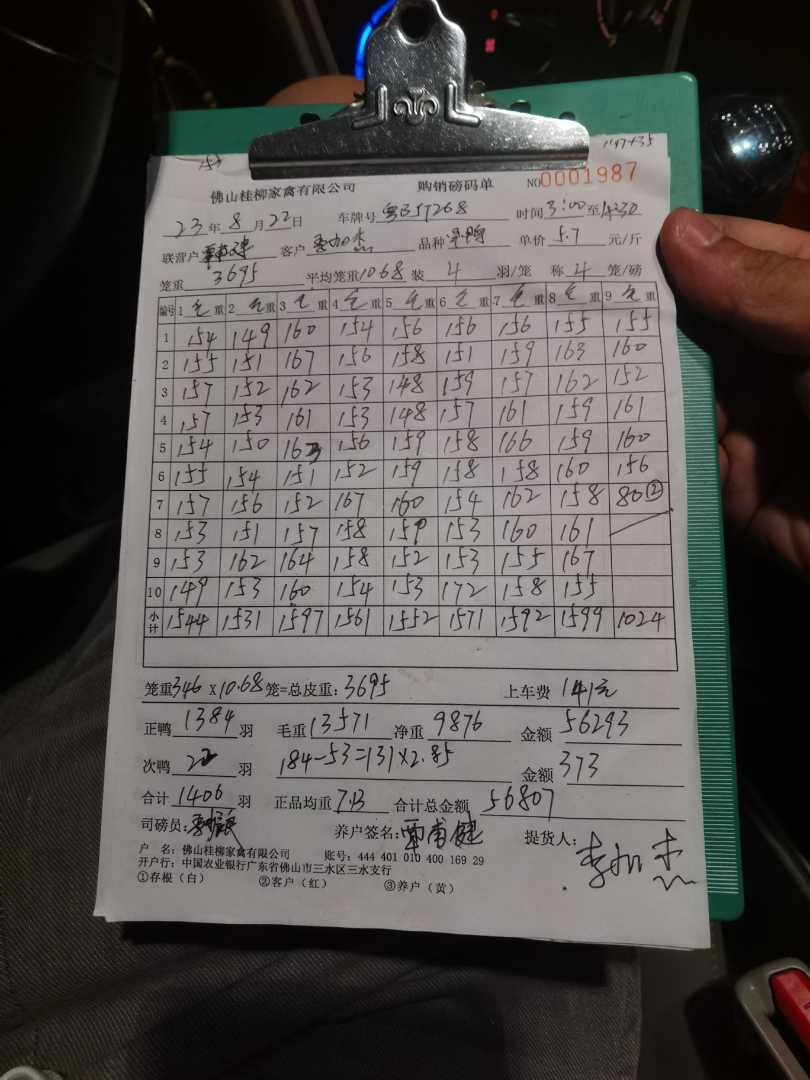 147+35
佛山桂柳家禽有限公司 购销磅码单 NO0001987
23年8月22日 车牌号 时间3:00至14:30
联营户 客户 李加杰 品种 单价5.7元/斤
笼重3695 平均笼重10.68装4羽/笼 称4笼/磅
编号 1毛重 2毛重 3毛重 4毛重 5毛重 6毛重 7毛重 8毛重 9毛重
1 154 149 160 154 156 156 156 155 155
2 155 151 167 156 158 151 159 163 160
3 157 152 162 153 148 159 157 162 152
4 157 153 161 153 148 157 161 159 161
5 154 150 163 156 159 158 166 159 160
6 155 154 151 152 159 158 158 160 156
7 157 156 152 167 160 154 162 158 80②
8 153 151 157 158 159 153 160 161
9 153 162 164 158 152 153 155 167
10 149 153 160 154 153 172 158 155
小计 1544 1531 1597 1561 1552 1571 1592 1599 1024
笼重346×10.68笼=总皮重:3695 上车费 141元
正鸭1384羽 毛重13571 净重9876 金额56293
次鸭22羽 184-53=131×2.85 金额373
合计1406羽 正品均重7.13 合计总金额56807
司磅员: 养户签名:覃甫健 提货人:李加杰
户 名:佛山桂柳家禽有限公司 账号:444 401 010 400 169 29
开户行:中国农业银行广东省佛山市三水区三水支行
①存根(白) ②客户(红) ③养户(黄)